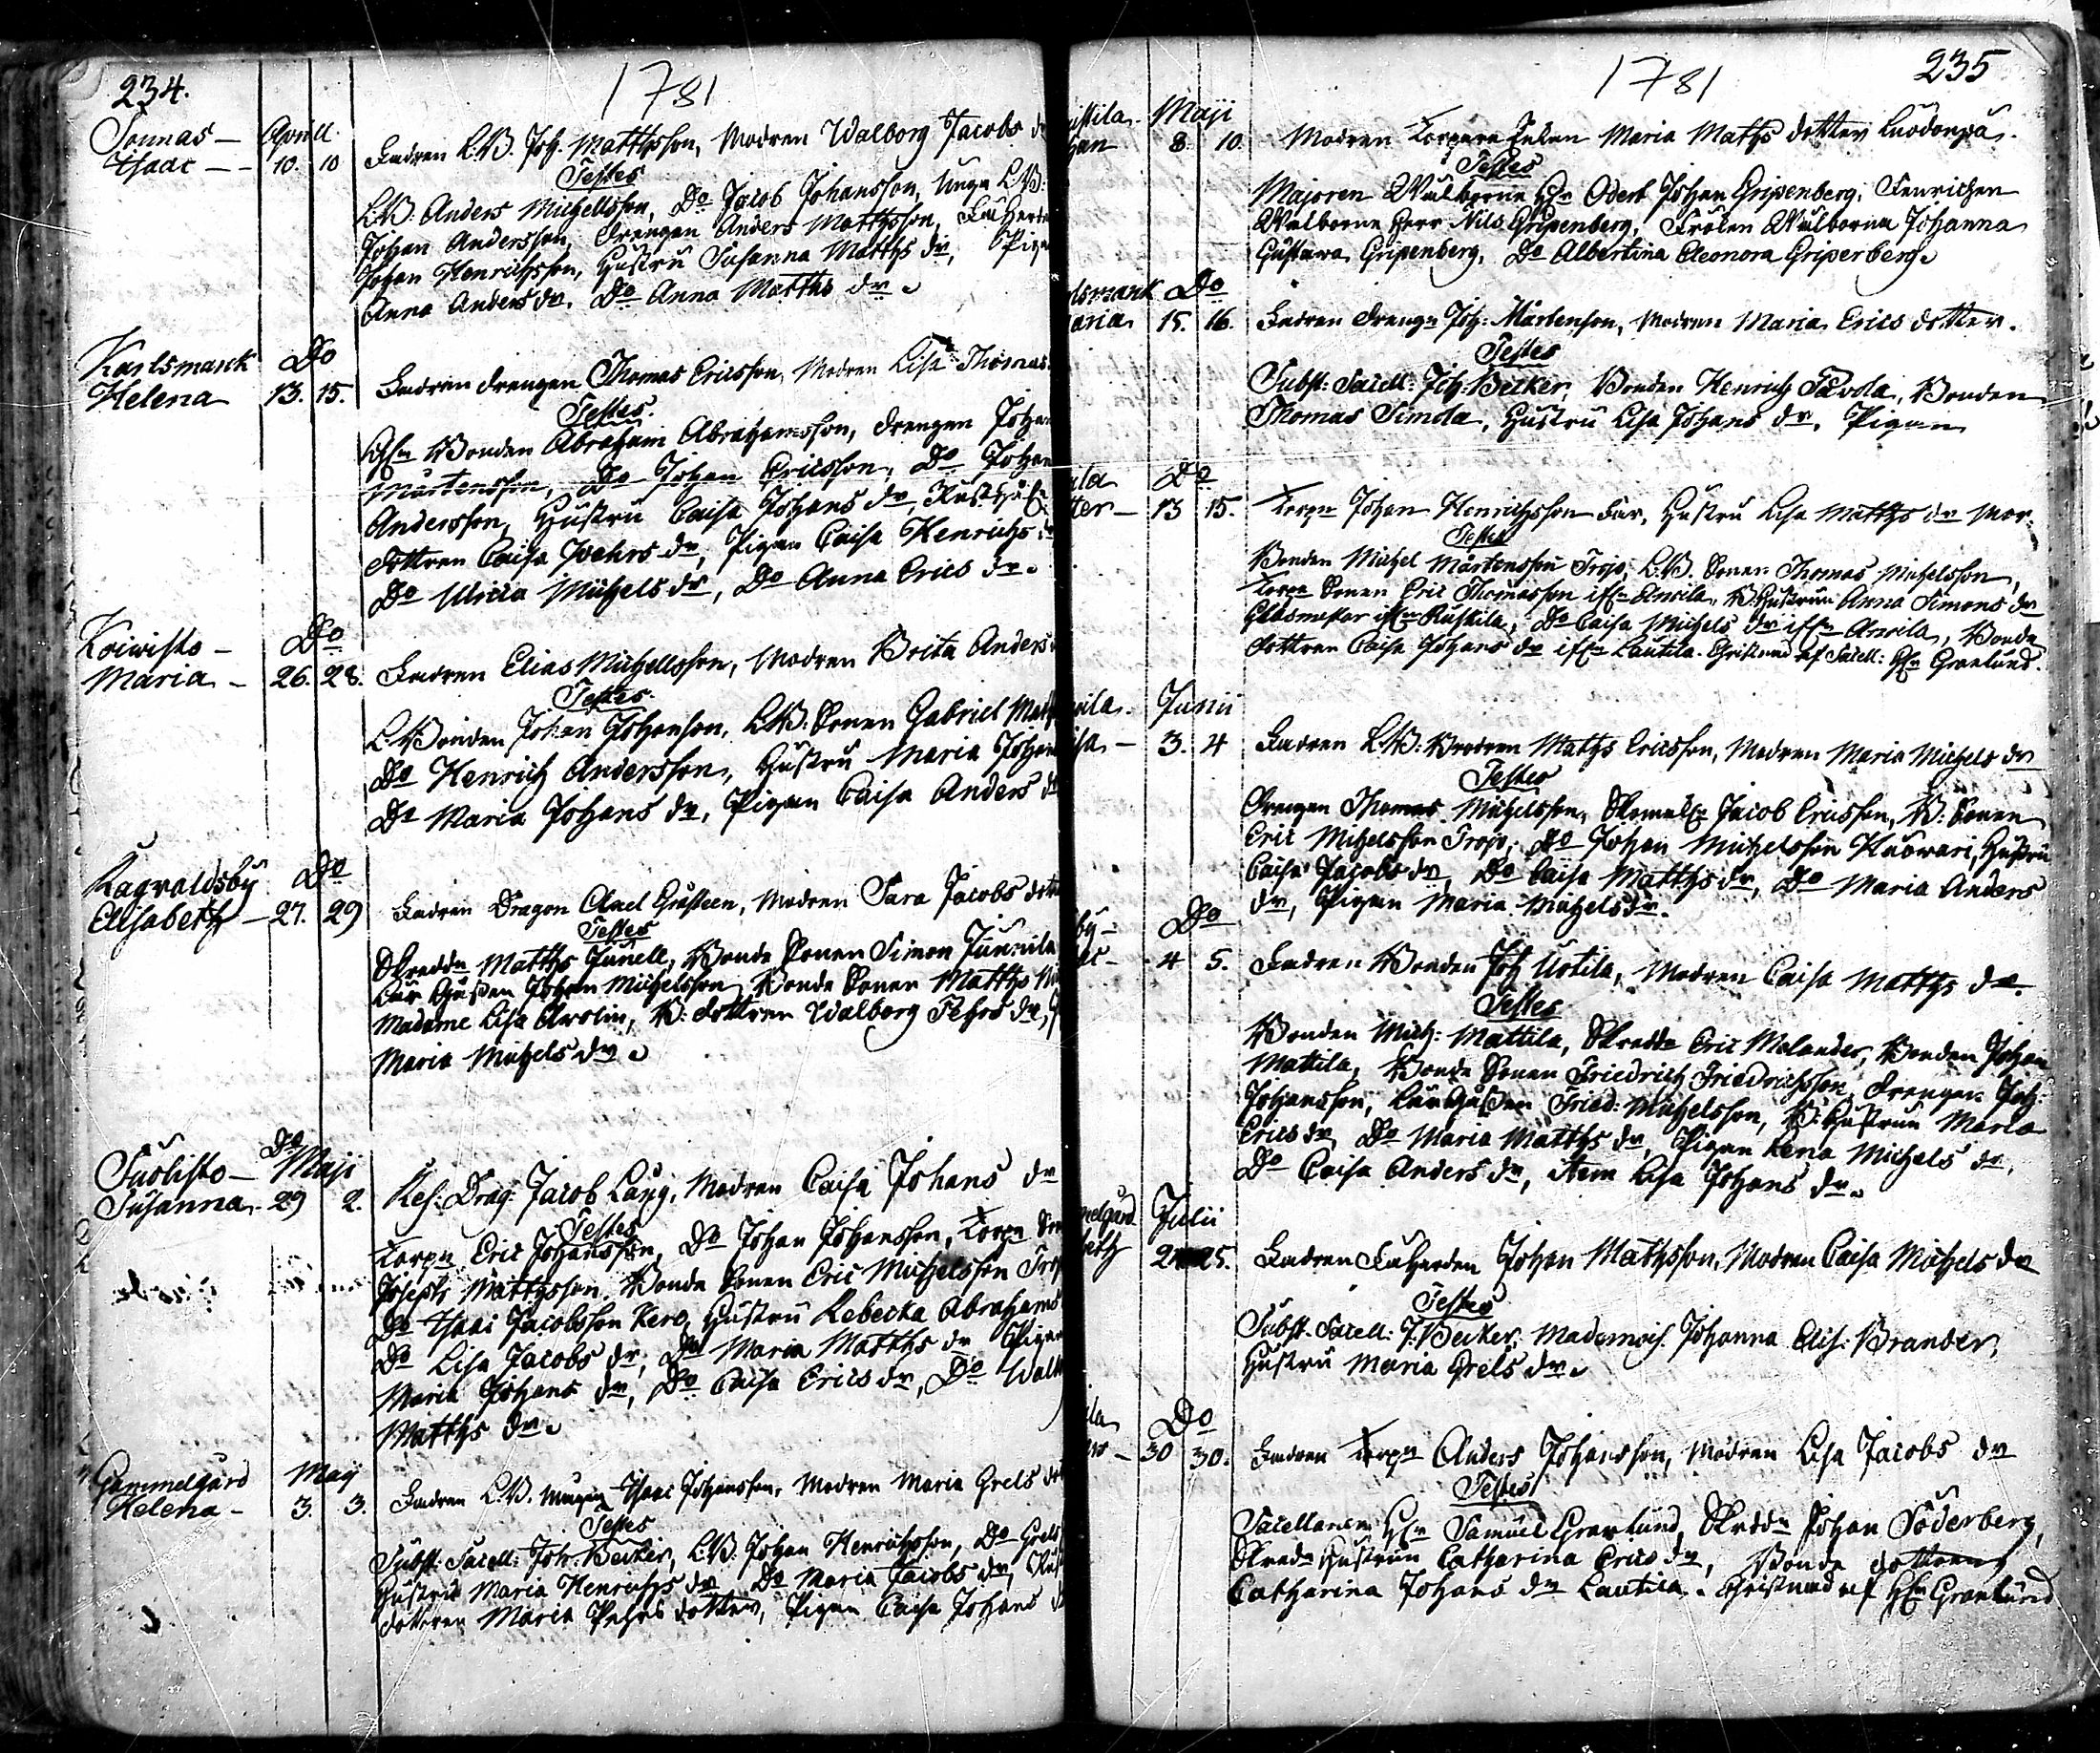 234.
1781
Sonnas — Aprill.
Isaac — 10. 10 Fadren L.B. Joh. Matthsson, Modren Walborg Jacobs
Testes
L.B. Anders Michellsson, Do Jacob Johansson, Unga L.B:
Johan Andersson, Drengen Anders Matthsson,
Johan Henrichsson, Hustru Susanna Matths dr, Pigan
Anna Anders dr. Do Anna Matths dr
Karlsmark Do
Helena 13. 15. Fadren Drengen Thomas Ericsson, Modren Lisa Thomas
Testes.
Bonden Abraham Abrahamsson, Drengen Johan
Mårtensson, Do Johan Ericsson, Do Johan
Andersson, Hustru Caisa Johans dr,
dottren Caisa Pehrs dr, Pigan Caisa Henrichs dr
Do Ulrica Michels dr, Do Anna Erics dr
Koivisto — Do
Maria — 26. 28. Fadren Elias Michellsson, Modren Brita Anders
Testes.
L. Bonden Johan Johanson, L.B: Sonen Gabriel
Do Henrich Andersson, Hustru Maria Johans
Do Maria Johans dr, Pigan Caisa Anders dr
Ragvaldsby Do
Elisabeth — 27. 29 Fadren Dragon Axel Gråsteen, Modren Sara Jacobs
Testes
Skreddn Matths Junell, Bonde Sonen Simon Junnila
Johan Michelsson, Bonde Sonen Matths
Madame Lisa Arolin, B: dottren Walborg Pehrs dr,
Maria Michels dr
Do
Suolisto — Maji
Susanna. 29 2. Res: Drag: Jacob Lång, Modren Caisa Johans dr
Testes
Torpn Eric Johansson, Do Johan Johansson, Torpn
Joseph Matthsson, Bonde Sonen Eric Michelsson
Do Isaac Jacobsson Kero, Hustru Rebecka Abrahams
Do Lisa Jacobs dr, Do Maria Matths dr Pigan
Maria Johans dr, Do Caisa Erics dr, Do
Matths dr
Gammelgård Maij
Helena — 3. 3. Fadren L.B. Isaac Johansson, Modren Maria Grels
Testes
Subst: Sacell: Joh: Becker, L.B: Johan Henrichsson, Do Grels
Hustru Maria Henrichs dr Do Maria Jacobs dr,
dottren Maria Pehrs dotter, Pigan Caisa Johans
235
1781
Maji
8. 10. Modren Torpare Enkan Maria Maths dotter
Testes
Majoren Wälborne Hr Odert Johan Gripenberg, Fenrichen
Wälborne Herr Nils Gripenberg, Fröken Wälborna Johanna
Gustava Gripenberg, Do Albertina Eleonora Gripenberg
Do
15. 16. Fadren Drengn Joh: Mårtenson, Modren Maria Erics dotter.
Testes
Subst: Sacell: Joh: Becker, Bonden Henrich Tavola, Bonden
Thomas Simola, Hustru Lisa Johans dr, Pigan
Do
13 15. Torpn Johan Henrichsson far, Hustru Lisa Matths dr Mor.
Testes
Bonden Michel Mårtensson Trojs, L.B. Sonen Thomas Michelsson,
Torpn Sonen Eric Thomasson Anvila, B. Hustrun Anna Simons dr
Ruskila, Do Caisa Michels dr Anvila, Bonde
dottren Caisa Johans dr Lautila. Christnad af Sacell: Hr Granlund.
Junii
3. 4 Fadren L.B: Brodren Maths Ericsson, Modren Maria Michels dr
Testes
Drengen Thomas Michelsson, Jacob Ericsson, B: Sonen
Eric Michelsson Trojs, Do Johan Michelsson Kuovari, Hustru
Caisa Jacobs dr, Do Caisa Matths dr, Do Maria Anders
dr, Pigan Maria Michels dr.
Do
4 5. Fadren Bonden Joh Uotila, Modren Caisa Matths dr.
Testes
Bonden Mich: Mattila, Skreddn Eric Melander, Bonden Johan
Mattila, Bonde Sonen Friedrich Friedrichsson, Drengen Joh:
Johansson, Fried: Michelsson, B: Hustrun Maria
Erics dr, Do Maria Matths dr, Pigan Lena Michels dr,
Do Caisa Anders dr, Item Lisa Johans dr
Julii
25. Fadren Johan Mathsson, Modren Caisa Michels dr
Testes
Subst. Sacell: J. Becker, Mademois. Johanna Elis: Brander,
Hustru Maria Grels dr
Do
30 30. Fadren Torpn Anders Johansson, Modren Lisa Jacobs dr
Testes
Sacellanen Hr Samuel Granlund, Skreddn Johan Söderberg,
Skredd Hustrun Catharina Erics dr, Bonde dottren
Catharina Johans dr Lautila. Christnad af Hr Granlund